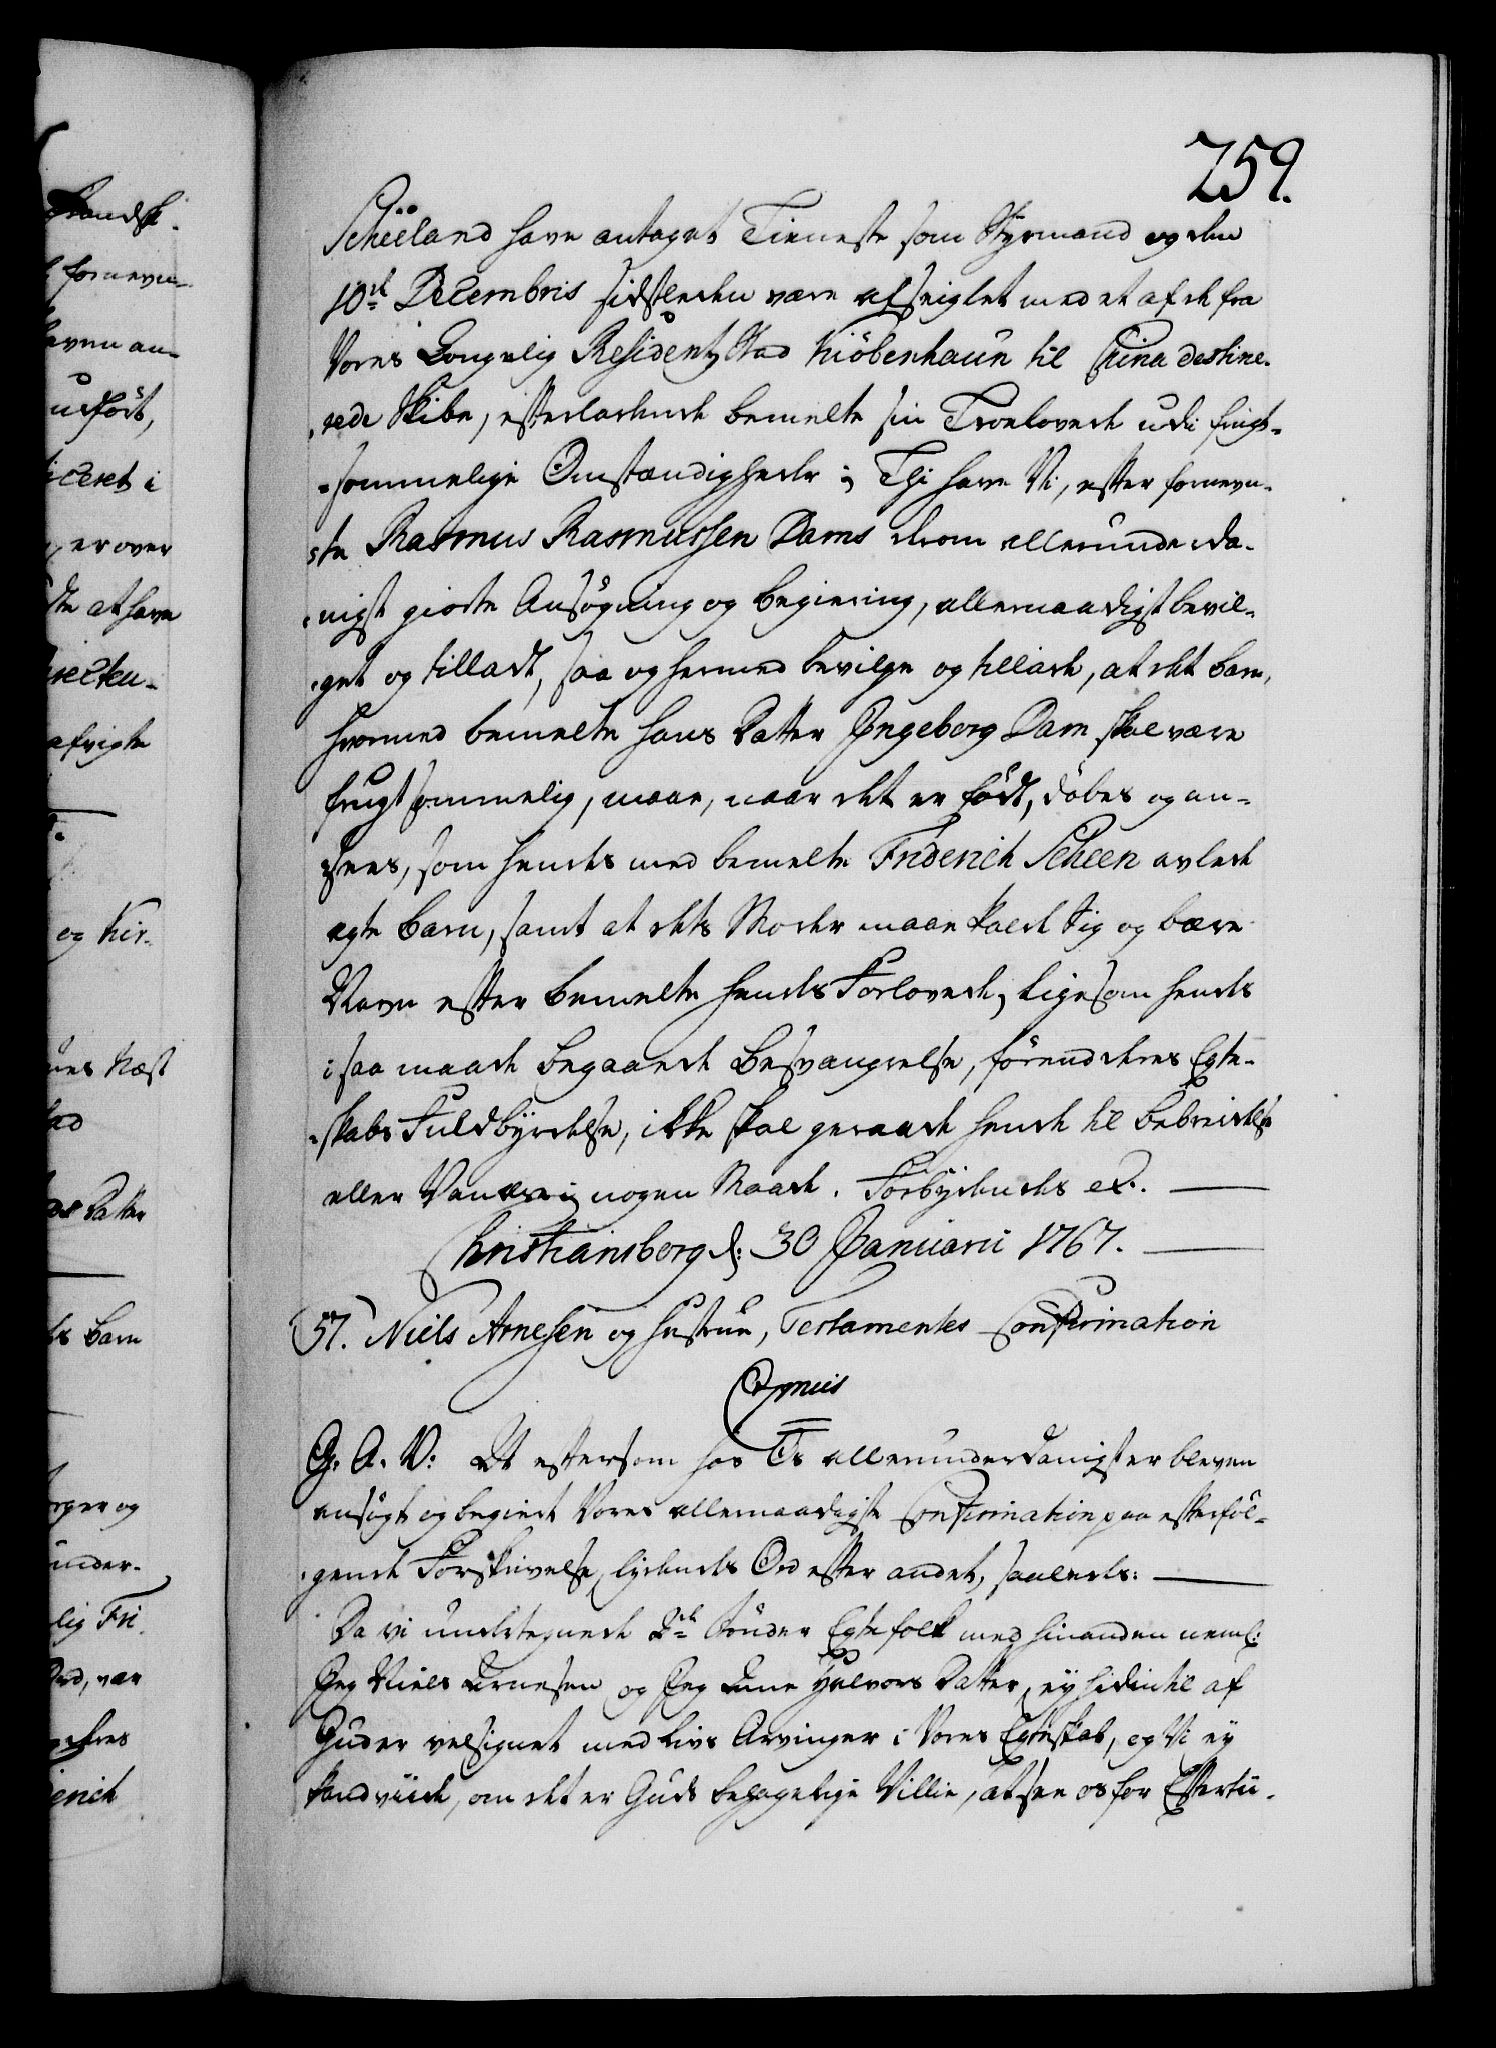 259.
Scheeland have antaget Tieneste som Styrmand og den
10de Decembris sidstleden være afseiglet med et af de fra
Vores Kongelig Residentz Stad Kiöbenhaun til China destine-
rede Skibe, efterladende bemelte sin Troelovede udi frugt-
sommelige Omstændigheder; Thi have Vi, efter fornevn-
te Rasmus Rasmussen Dams derom allerunderda-
nigst giorte Ansøgning og Begiering, allernaadigst bevil-
get og tilladt, saa og hermed bevilge og tillade, at det Barn,
hvormed bemelte hans Datter Ingeborg Dam skal være
frugtsommelig, maae, naar det er födt, döbes og an-
sees, som hendes med bemelte Friderich Scheen avlede
ægte Barn, samt at dets Moder maae kalde sig og bære
Navn efter bemelte hendes Forlovede, ligesom hendes
i saa maade begaaede Besvangrelse, förend deres Egte-
skabs Fuldbyrdelse, ikke skal geraade hende til Bebreidelse
eller Vanære i nogen Maade. Forbydendes etc.
Christiansborg d: 30 Januarii 1767.
57. Niels Arnesen og Hustrue, Testamentes Confirmation
Gratis
G. A. V: At eftersom hos Os allerunderdanigst er bleven
ansögt og begiert Vores allernaadigste Confirmation paa efterföl-
gende Forskrivelse, lydendes Ord efter andet, saaledes:
Da vi undertegnede 2de Bönder Egtefolk med hinanden neml:
Jeg Niels Arnesen og Jeg Anne Halvors Datter, ey hidintil af
Gud er velsignet med Livs Arvinger i Vores Egteskab, og Vi ey
kand viide, om det er Guds behagelige Villie, at see os for Eftertii-
fornevn-
haven an-
udfört,
er over
at have
afvigte
og Kir-
Næst
Datter
Barn
og
under-
lig Fri-
var